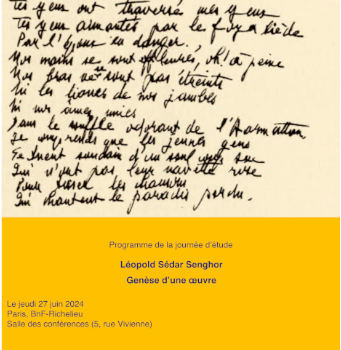 tes yeux ont traversé mes yeux
tes yeux aimantés par le
Par l'époux en danger.
Nos mains se sont effleurées, oh! à peine
Nos bras ne se sont pas étreints
Ni les lianes de nos jambes
Ni nos âmes unies
Dans le souffle odorant de l'Harmattan
Je comprends que les jeunes gens
Se tuent soudain d'un seul
Qui n'ont pas leur navité rose
Pour
Qui chantent le paradis perdu.
Programme de la journée d'étude
Léopold Sédar Senghor
Genèse d'une œuvre
Le jeudi 27 juin 2024
Paris, BnF-Richelieu
Salle des conférences (5, rue Vivienne)